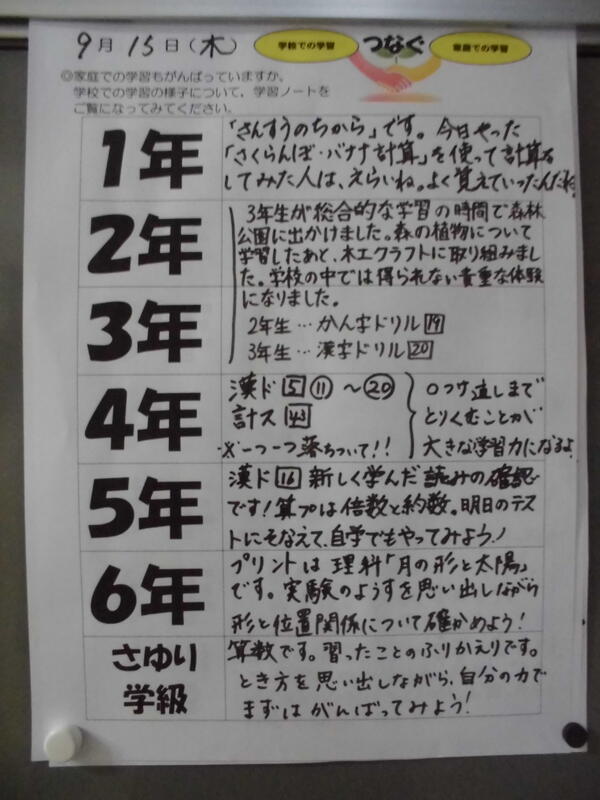 9月15日(木)
学校での学習 つなぐ 家庭での学習
◎家庭での学習もがんばっていますか。
学校での学習の様子について、学習ノートを
ご覧になってみてください。
1年
「さんすうのちから」です。今日やった
「さくらんぼ・バナナ計算」を使って計算を
してみた人は、えらいね。よく覚えていったんだね。
2年
3年生が総合的な学習の時間で森林
公園に出かけました。森の植物について
学習したあと、木工クラフトに取り組みまし
た。学校の中では得られない貴重な体験
になりました。
3年
2年生…かん字ドリル19
3年生…漢字ドリル20
4年
漢ド5⑪～⑳
計ス43
※一つ一つ落ちついて!!
○つけ直しまで
とりくむことが
大きな学習力になるよ
5年
漢ド16新しく学んだ読みの確認
です!算プは倍数と約数。明日のテス
トにそなえて、自学でもやってみよう!
6年
プリントは理科「月の形と太陽」
です。実験のようすを思い出しながら
形と位置関係について確かめよう!
さゆり
学級
算数です。習ったことのふりかえりです。
とき方を思い出しながら、自分の力で
まずはがんばってみよう!